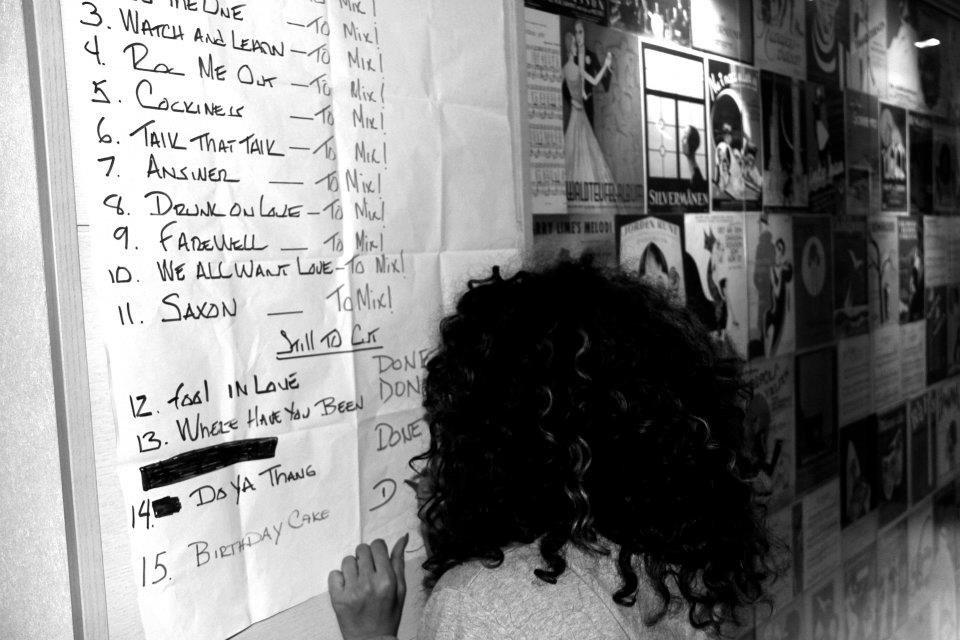 THE ONE — TO MIX!
3. WATCH AND LEARN — TO MIX!
4. ROC ME OUT — TO MIX!
5. COCKINESS — TO MIX!
6. TALK THAT TALK — TO MIX!
7. ANSWER — TO MIX!
8. DRUNK ON LOVE — TO MIX!
9. FAREWELL — TO MIX!
10. WE ALL WANT LOVE - TO MIX!
11. SAXON — TO MIX!
STILL TO CUT
12. FOOL IN LOVE DONE
13. WHERE HAVE YOU BEEN DONE
DONE
14. DO YA THANG D
15. BIRTHDAY CAKE
WALDTEUFEL-ALBUM
SILVERMÅNEN
HARRY LIME'S MELODI